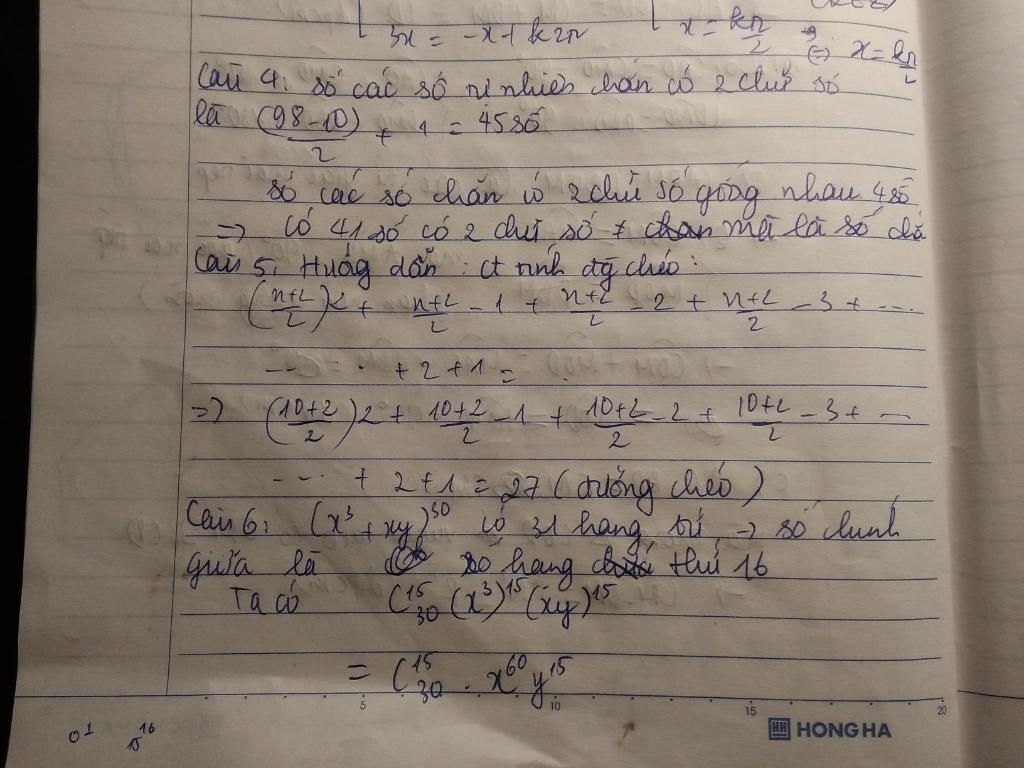 3x = -x + k2π x = kπ/2 (k∈Z)
⇔ x = kπ/2
Câu 4: số các số tự nhiên chẵn có 2 chữ số
là (98-10)/2 + 1 = 45 số
số các số chẵn có 2 chữ số giống nhau 4 số
=> có 41 số có 2 chữ số ≠ mà là số chẵ
Câu 5, Hướng dẫn: ct tính đg chéo:
((n+2)/2)2 + (n+2)/2 - 1 + (n+2)/2 - 2 + (n+2)/2 - 3 + ....
... . + 2 + 1 =
=> ((10+2)/2)2 + (10+2)/2 - 1 + (10+2)/2 - 2 + (10+2)/2 - 3 + ...
.... + 2 + 1 = 27 (đường chéo)
Câu 6: (x³ + xy)³⁰ có 31 hạng tử, -> số chính
giữa là số hạng thứ 16
Ta có C¹⁵₃₀ (x³)¹⁵ (xy)¹⁵
= C¹⁵₃₀ . x⁶⁰ y¹⁵
5 10 15 20
0 1 15 16 HH HONG HA